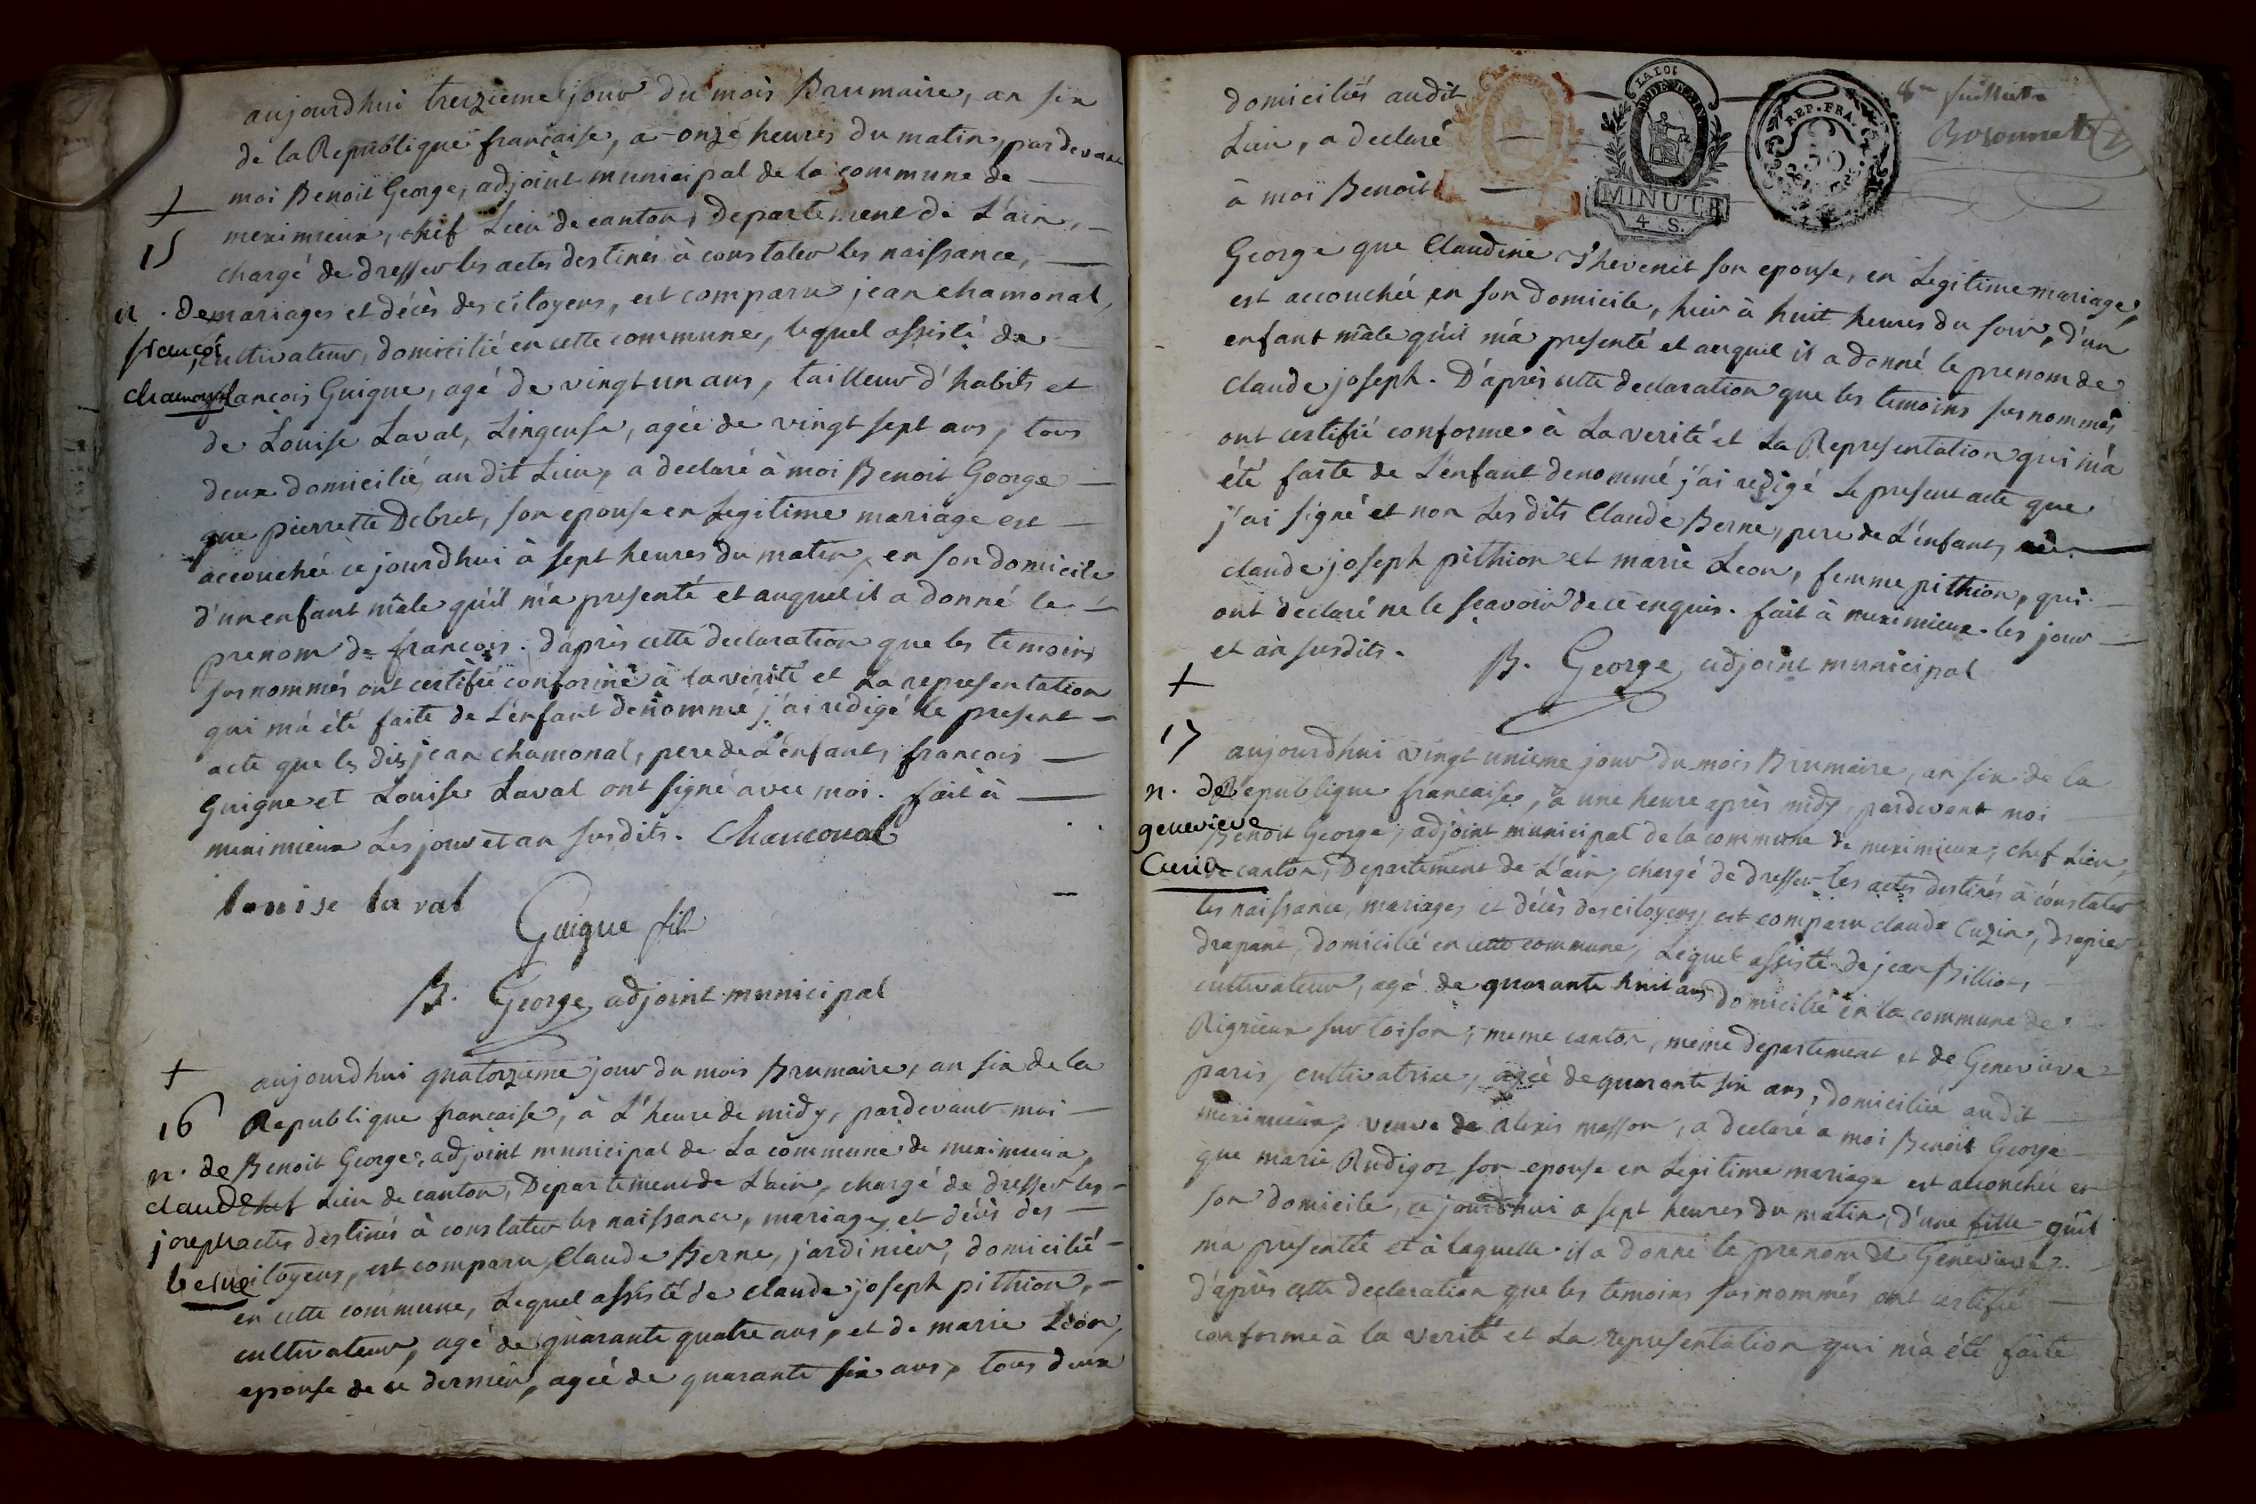 aujourdhui treizieme jour du mois Brumaire, an six
de la Republique française, a onze heures du matin, pardevant
moi Benoit George, adjoint municipal de la commune de
meximieux, chef Lieu de canton, departement de L'ain,
chargé de dresser les actes destinés à constater les naissance,
mariages et décès des citoyens, est comparu jean chamonal,
cultivateur, domicilié en cette commune, lequel assisté de
francois Guigue, agé de vingt un ans, tailleur d'habits et
de Louise Laval, Lingeuse, agée de vingt sept ans, tous
deux domicilié, au dit Lieu, a declaré à moi Benoit George
que pierrette Debret, son epouse en Legitime mariage est
accouchée ce jourdhui à sept heures du matin, en son domicile
d'un enfant mâle qu'il m'a presenté et auquel il a donné le
prenom de francois. d'après cette declaration que les temoins
susnommés ont certifié conforme à la verité et La representation
qui m'a été faite de L'enfant denommé j'ai redigé le present
acte que les dis jean chamonal, pere de L'enfant, francois
Guigue et Louise Laval ont signé avec moi. fait à
meximieux Les jour et an susdits. Chamonal
louise la val
Guigue fils
B. George, adjoint municipal
+
15
n. de
françois
chamonal
+
16
n. de
claude
joseph
berne
aujourdhui quatorzieme jour du mois Brumaire, an six de la
Republique francaise, à L'heure de midy, pardevant moi
Benoit George, adjoint municipal de La commune de meximieux
chef Lieu de canton, Departement de L'ain, chargé de dresser les
actes destinés à constater les naissance, mariages et décès des
citoyens, est comparu Claude Berne, jardinier, domicilié
en cette commune, Lequel assisté de claude joseph pithion,
cultivateur, agé de quarante quatre ans, et de marie Léon,
epouse de ce dernier, agée de quarante six ans, tous deux
domiciliés audit
Lieu, a declaré
à moi Benoit
LA LOI
MINUTE
4 S.
REP. FRA.
8me feuillet
George que Claudine Thevenet son epouse, en Legitime mariage,
est accouchée en son domicile, hier à huit heures du soir, d'un
enfant mâle qu'il m'a presenté et auquel il a donné le prenom de
Claude joseph. D'après cette declaration que les temoins susnommés
ont certifié conforme à La verité et La Representation qui m'a
été faite de L'enfant denommé j'ai redigé Le present acte que
j'ai signé et non Lesdits Claude Berne, pere de L'enfant,
claude joseph pithion et marie Leon, femme pithion, qui
ont declaré ne le scavoir de ce enquis. fait à meximieux les jour
et an susdits.
B. George, adjoint municipal
+
17
n. de
genevieve
Cuzin
aujourdhui vingt unieme jour du mois Brumaire, an six de la
Republique francaise, à une heure après midy, pardevant moi
Benoit George, adjoint municipal de la commune de meximieux, chef Lieu
de canton, Departement de L'ain, chargé de dresser les actes destinés à constater
les naissance, mariages et décès des citoyens, est comparu claude Cuzin, drapier
drapant, domicilié en cette commune, Lequel assisté de jean Billion,
cultivateur, agé de quarante huit ans domicilié en la commune de
Rignieux sur toison, meme canton, meme departement et de Genevieve
paris, cultivatrice, agée de quarante six ans, domiciliée audit
meximieux, veuve de alexis masson, a declaré a moi Benoit George
que marie Rudigoz son epouse en Legitime mariage est accouchée en
son domicile, ce jourdhui a sept heures du matin, d'une fille qu'il
ma presentée et à laquelle il a donné le prenom de Genevieve.
d'après cette declaration que les temoins susnommés ont certifié
conforme à la verité et La representation qui m'a été faite